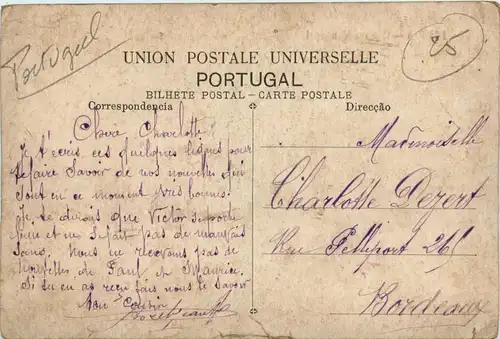 Portugal
25
UNION POSTALE UNIVERSELLE
PORTUGAL
BILHETE POSTAL — CARTE POSTALE
Correspondencia
Direcção
Chère Charlotte
Je t'écris ces quelques lignes pour
te faire savoir de nos nouvelles qui
sont en ce moment très bonnes.
Je te dirais que Victor supporte
bien et ne fait pas de mauvais
sang. Nous ne recevons pas de
nouvelles de Paul et Maurice.
Si tu en as reçu fais nous le savoir
Ton Cousin
Mademoiselle
Charlotte Dezert
Rue Pelleport 265
Bordeaux